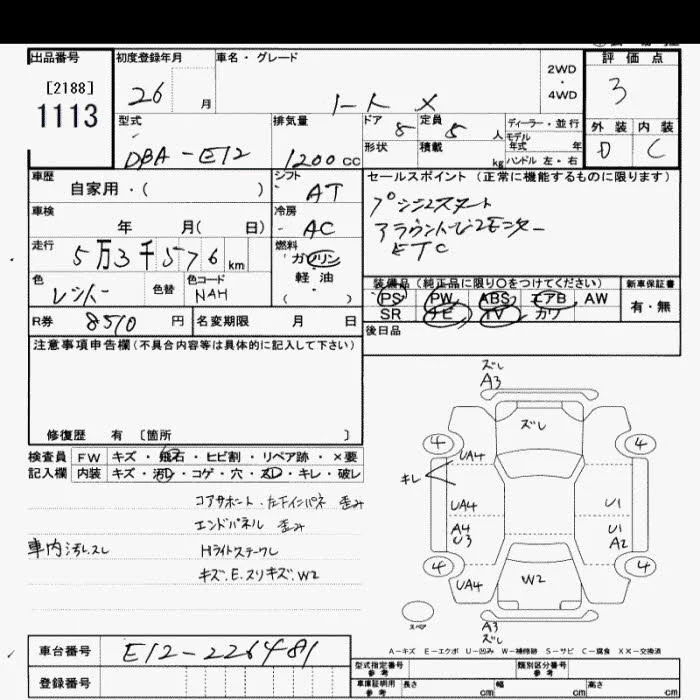 出品番号
[2188]
1113
初度登録年月
26
月
車名・グレード
ノート メ
2WD
・
4WD
評価点
3
外装 内装
D C
型式
DBA-E12
排気量
1200 cc
ドア 5
定員 5 人
形状
積載
kg
ディーラー・並行
モデル
年式 年
ハンドル 左・右
車歴
自家用・( )
シフト
AT
車検
年 月( 日)
冷房
AC
走行
5万3千576 km
燃料
ガソリン
軽油
( )
色
色替
色コード
NAH
R券 8510 円
名変期限 月 日
セールスポイント (正常に機能するものに限ります)
プッシュスタート
アラウンドビューモニター
ETC
装備品 (純正品に限り〇をつけてください)
新車保証書
PS PW ABS エアB AW
有・無
SR ナビ TV カワ
後日品
注意事項申告欄(不具合内容等は具体的に記入して下さい)
修復歴 有 〔箇所 〕
検査員
記入欄
FW キズ・飛石・ヒビ割・リペア跡・×要
内装 キズ・汚レ・コゲ・穴・スレ・キレ・破レ
コアサポート・左下インパネ 歪み
エンドパネル 歪み
車内汚レ.スレ
Hライトスチワレ
キズ.E.スリキズ.W2
ズレ
A3
ズレ
4
4
UA4
キレ
UA4
U1
A4
U3
U1
A2
4
4
UA4
W2
スペア
A3
ズレ
A-キズ E-エクボ U-凹み W-補修跡 S-サビ C-腐食 XX-交換済
車台番号
E12-226481
登録番号
型式指定番号
参考
類別区分番号
参考
車庫証明用
参考
長さ cm 幅 cm 高さ cm